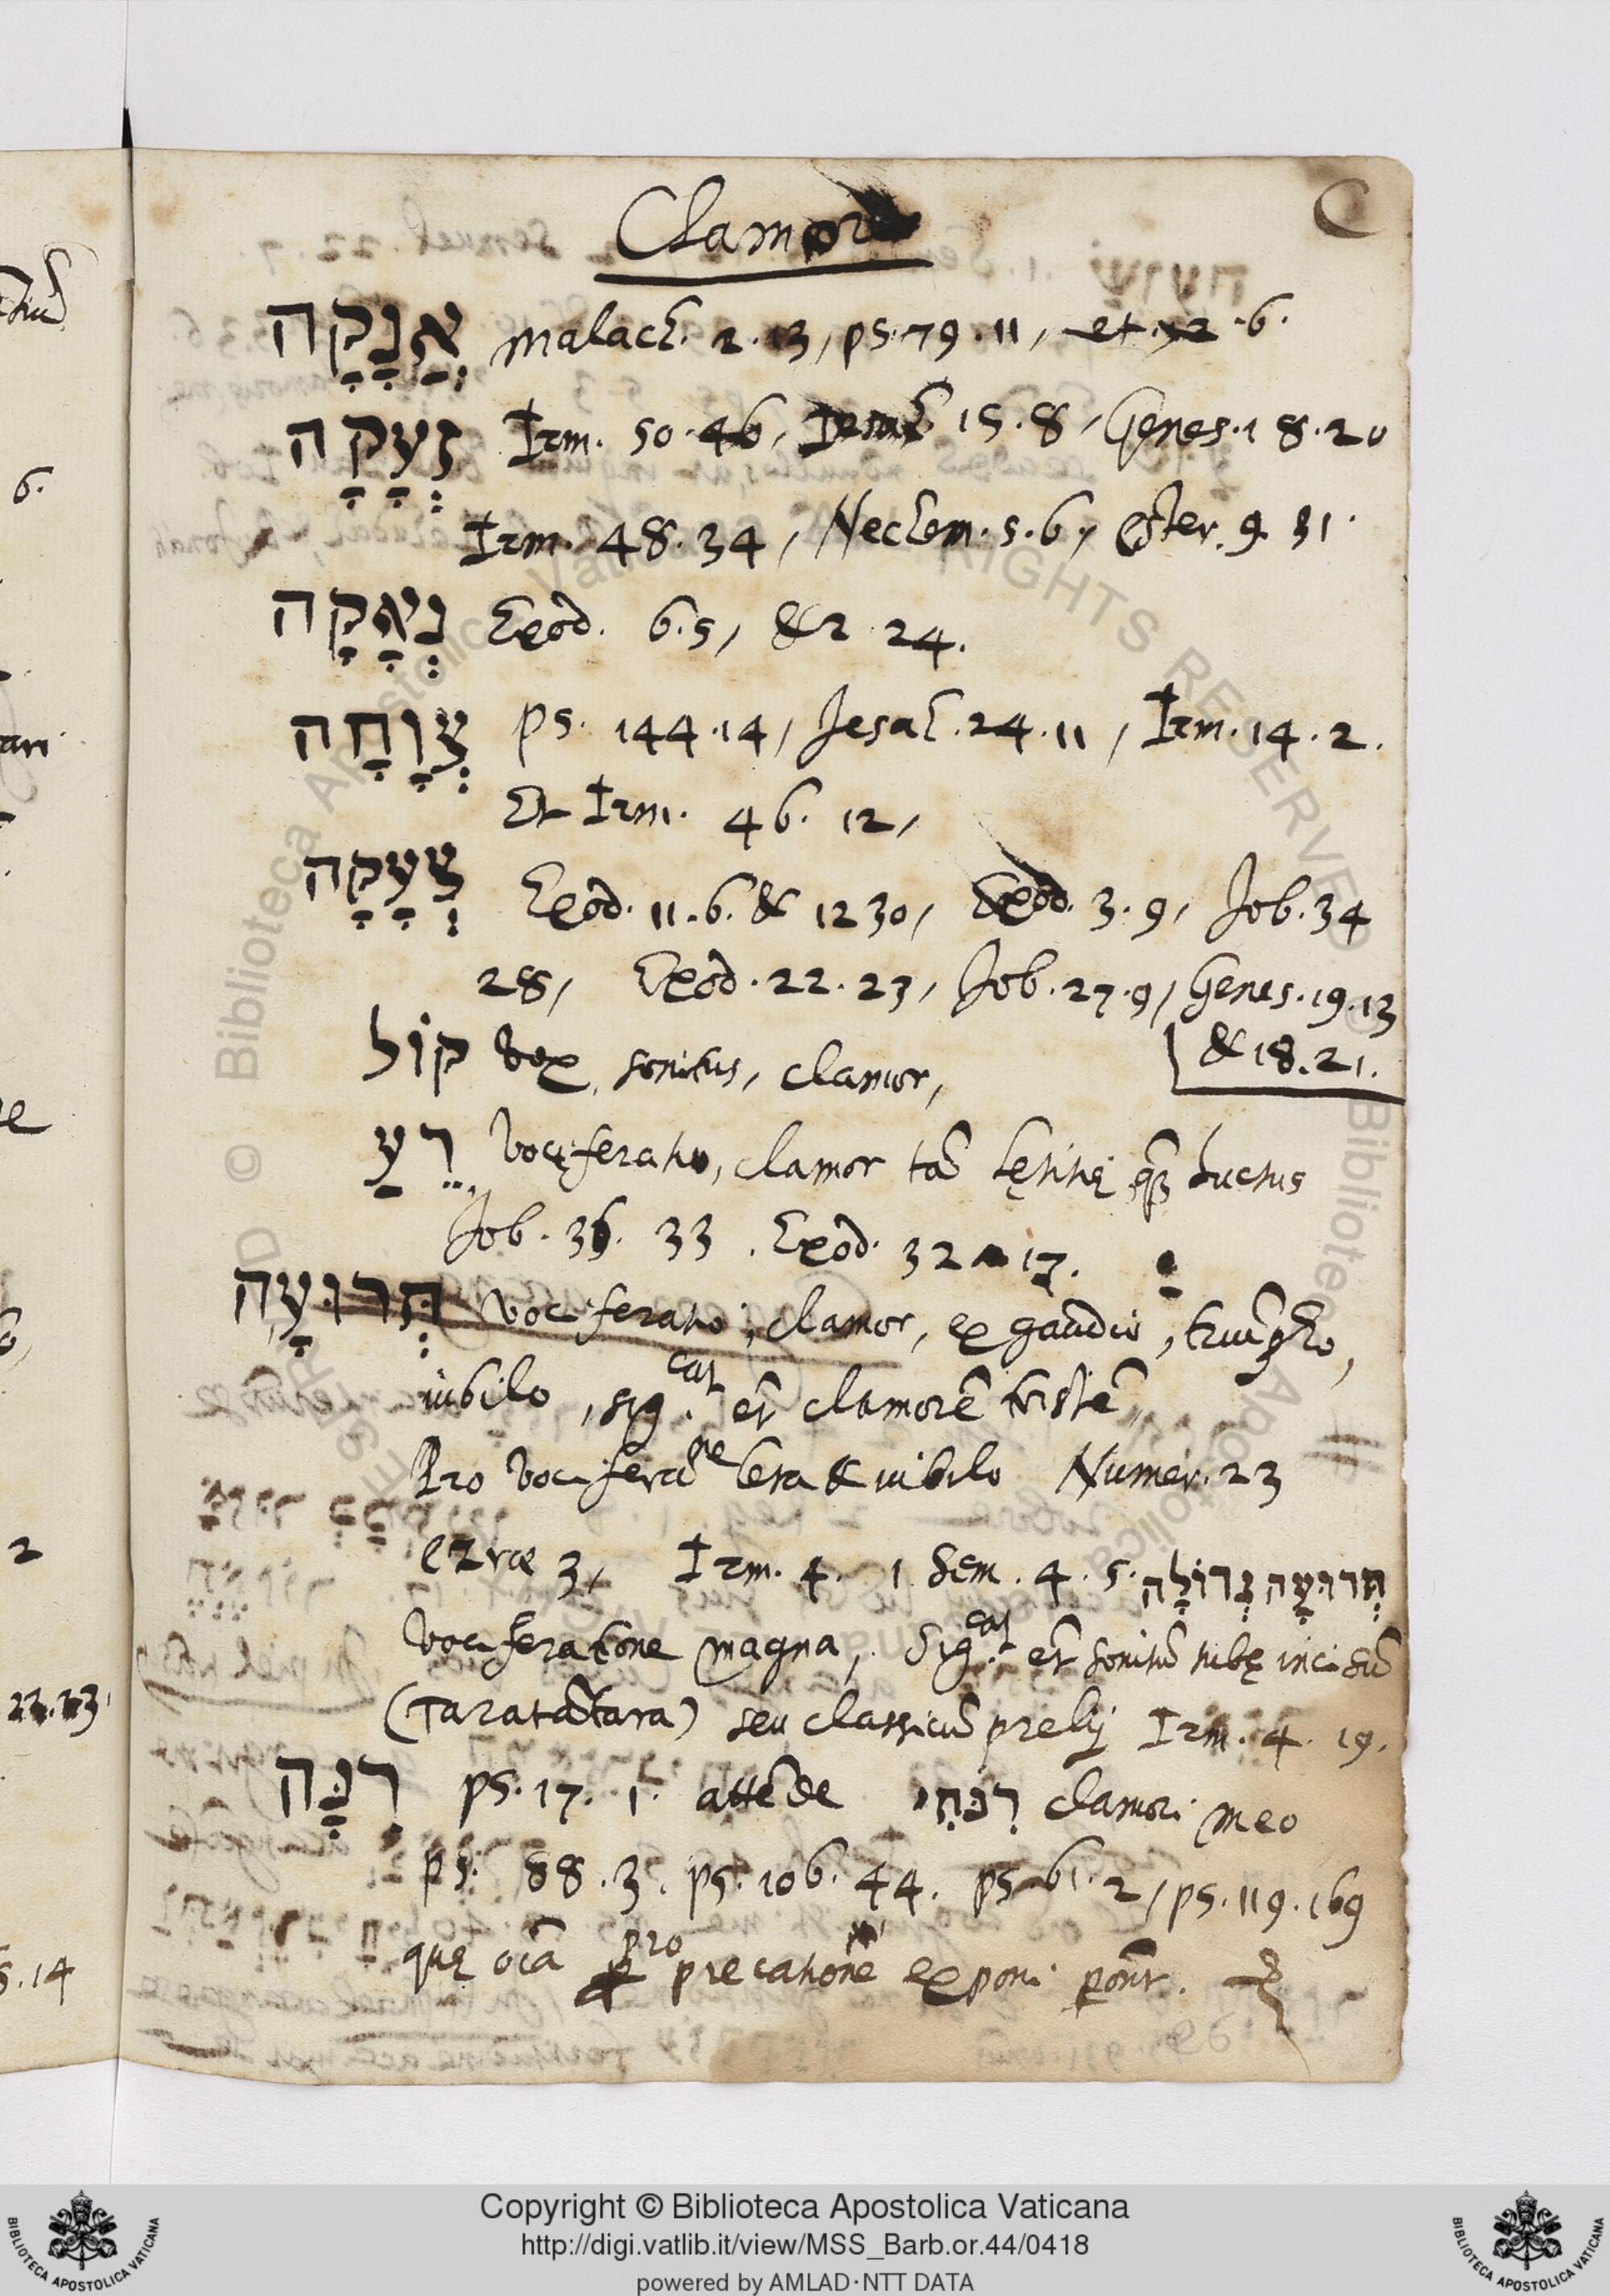 Clamor
C
אֲנָקָה Malach. 2.13, ps.79.11, et 12.6.
זְעָקָה Irm. 50.46, 15.8, Genes.18.20
Irm. 48.34, Nechem.5.6, Ester.9 31.
נְאָקָה Exod. 6.5, & 2 24.
צְוָחָה ps. 144.14, Jesah.24.11, Irm.14.2.
Et Irm. 46. 12,
צְעָקָה Exod. 11.6. & 12 30, Exod. 3.9, Job.34
28, Exod.22.23, Job.27.9, Genes.19.13
& 18.21.
קוֹל vox, sonitus, clamor,
רֵעַ vociferatio, clamor tã lętitię quã luctus
Job.36. 33. Exod. 32 17.
תְּרוּעָה vociferatio, clamor, ex gaudio, triũpho,
iubilo, sig.cat et clamorẽ tristẽ
Pro vociferãne leta & iubilo Numer.23
ezræ 3, Irm. 4. 1 Sem. 4. 5. תְּרוּעָה גְּדוֹלָה
vociferatione magna, Sig.cat et sonitũ tubę incisũ
(Taratãtara) seu classicũ prelij Irm. 4. 19.
רִנָּה ps.17. 1. attẽde רִנָּתִי clamori meo
ps. 88.3. ps.106.44. ps 61.2, ps.119.169
quę oĩa pro precatione exponi
6.
2
22.23
5.14
Copyright © Biblioteca Apostolica Vaticana
http://digi.vatlib.it/view/MSS_Barb.or.44/0418
powered by AMLAD·NTT DATA
BIBLIOTECA APOSTOLICA VATICANA
BIBLIOTECA APOSTOLICA VATICANA